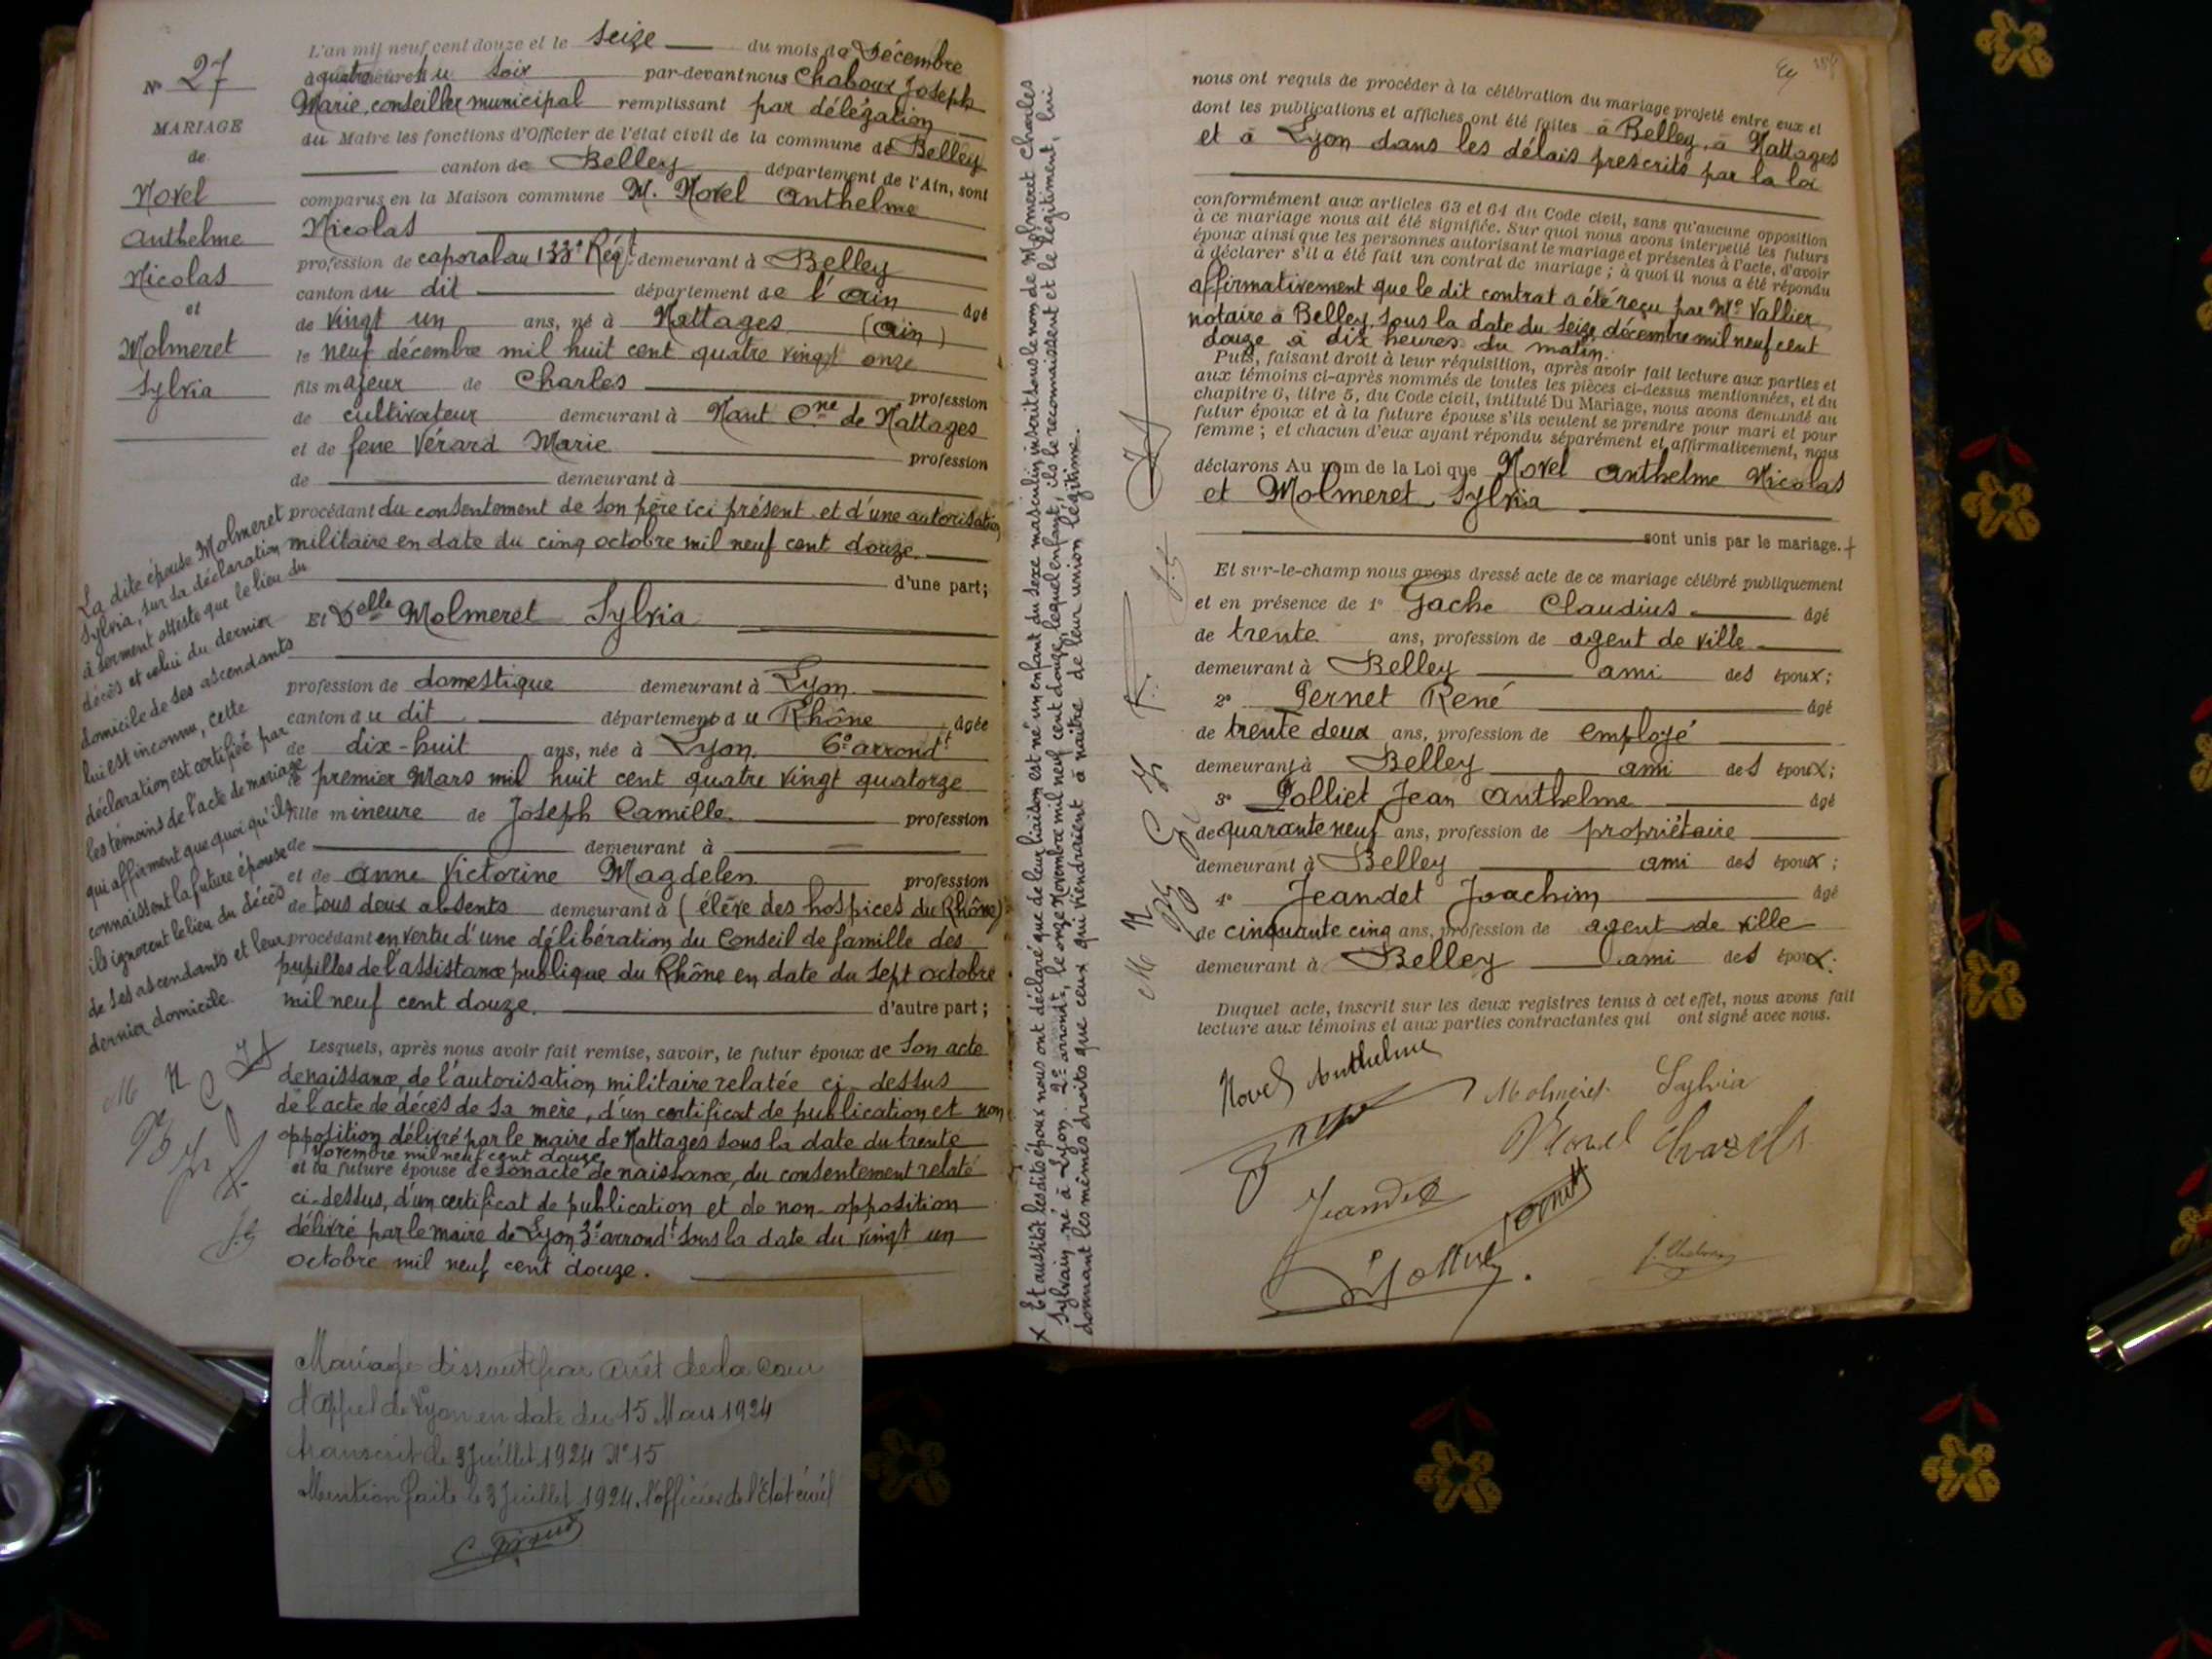 N° 27
MARIAGE
de
Novel
Anthelme
Nicolas
et
Molmeret
Sylvia
L'an mil neuf cent douze et le seize du mois de Décembre
à quatre heures du soir par-devant nous Chaboux Joseph
Marie, conseiller municipal remplissant par délégation
du Maire les fonctions d'Officier de l'état civil de la commune de Belley
canton de Belley département de l'Ain, sont
comparus en la Maison commune M. Novel Anthelme
Nicolas
profession de caporal au 133e Régt demeurant à Belley
canton du dit département de l'Ain âgé
de vingt un ans, né à Nattages (Ain)
le neuf décembre mil huit cent quatre vingt onze
fils majeur de Charles profession
de cultivateur demeurant à Nant Cne de Nattages
et de feue Vérard Marie profession
de demeurant à
procédant du consentement de son père ici présent et d'une autorisation
militaire en date du cinq octobre mil neuf cent douze.
d'une part;
Et Delle Molmeret Sylvia
profession de domestique demeurant à Lyon
canton du dit département du Rhône âgée
de dix-huit ans, née à Lyon 6e arrondt
le premier Mars mil huit cent quatre vingt quatorze
fille mineure de Joseph Camille profession
de demeurant à
et de Anne Victorine Magdelen profession
de tous deux absents demeurant à (élève des hospices du Rhône)
procédant en vertu d'une délibération du Conseil de famille des
pupilles de l'assistance publique du Rhône en date du sept octobre
mil neuf cent douze. d'autre part;
Lesquels, après nous avoir fait remise, savoir, le futur époux de son acte
de naissance, de l'autorisation militaire relatée ci-dessus
de l'acte de décès de sa mère, d'un certificat de publication et non
opposition délivré par le maire de Nattages sous la date du trente
Novembre mil neuf cent douze
et la future épouse de son acte de naissance, du consentement relaté
ci-dessus, d'un certificat de publication et de non-opposition
délivré par le maire de Lyon 3e arrondt sous la date du vingt un
octobre mil neuf cent douze.
La dite épouse Molmeret
Sylvia, sur sa déclaration
à serment atteste que le lieu du
décès et celui du dernier
domicile de ses ascendants
lui est inconnu, cette
déclaration est certifiée par
les témoins de l'acte de mariage
qui affirment que quoi qu'ils
connaissent la future épouse
ils ignorent le lieu du décès
de ses ascendants et leur
dernier domicile.
Mariage dissout par arrêt de la Cour
d'Appel de Lyon en date du 15 Mars 1924
transcrit le 3 Juillet 1924 N° 15
Mention faite le 3 Juillet 1924. l'officier de l'Etat civil
X Et aussitôt les dits époux nous ont déclaré que de leur liaison est né un enfant du sexe masculin inscrit sous le nom de Molmeret Charles
Sylvain né à Lyon 2e arrondt, le onze Novembre mil neuf cent douze, lequel enfant, ils le reconnaissent et le légitiment, lui
donnant les mêmes droits que ceux qui viendraient à naître de leur union légitime.
nous ont requis de procéder à la célébration du mariage projeté entre eux et
dont les publications et affiches ont été faites à Belley, à Nattages
et à Lyon dans les délais prescrits par la loi
conformément aux articles 63 et 64 du Code civil, sans qu'aucune opposition
à ce mariage nous ait été signifiée. Sur quoi nous avons interpellé les futurs
époux ainsi que les personnes autorisant le mariage et présentes à l'acte, d'avoir
à déclarer s'il a été fait un contrat de mariage; à quoi il nous a été répondu
affirmativement que le dit contrat a été reçu par Me Vallier
notaire à Belley, sous la date du seize décembre mil neuf cent
douze à dix heures du matin.
Puis, faisant droit à leur réquisition, après avoir fait lecture aux parties et
aux témoins ci-après nommés de toutes les pièces ci-dessus mentionnées, et du
chapitre 6, titre 5, du Code civil, intitulé Du Mariage, nous avons demandé au
futur époux et à la future épouse s'ils veulent se prendre pour mari et pour
femme; et chacun d'eux ayant répondu séparément et affirmativement, nous
déclarons Au nom de la Loi que Novel Anthelme Nicolas
et Molmeret Sylvia
sont unis par le mariage.
Et sur-le-champ nous avons dressé acte de ce mariage célébré publiquement
et en présence de 1° Gache Claudius âgé
de trente ans, profession de agent de ville
demeurant à Belley ami des époux;
2° Pernet René âgé
de trente deux ans, profession de employé
demeurant à Belley ami des époux;
3° Polliet Jean Anthelme âgé
de quarante neuf ans, profession de propriétaire
demeurant à Belley ami des époux;
4° Jeandet Joachim âgé
de cinquante cinq ans, profession de agent de ville
demeurant à Belley ami des époux.
Duquel acte, inscrit sur les deux registres tenus à cet effet, nous avons fait
lecture aux témoins et aux parties contractantes qui ont signé avec nous.
Novel Anthelme
Molmeret Sylvia
Novel Charles
Jeandet